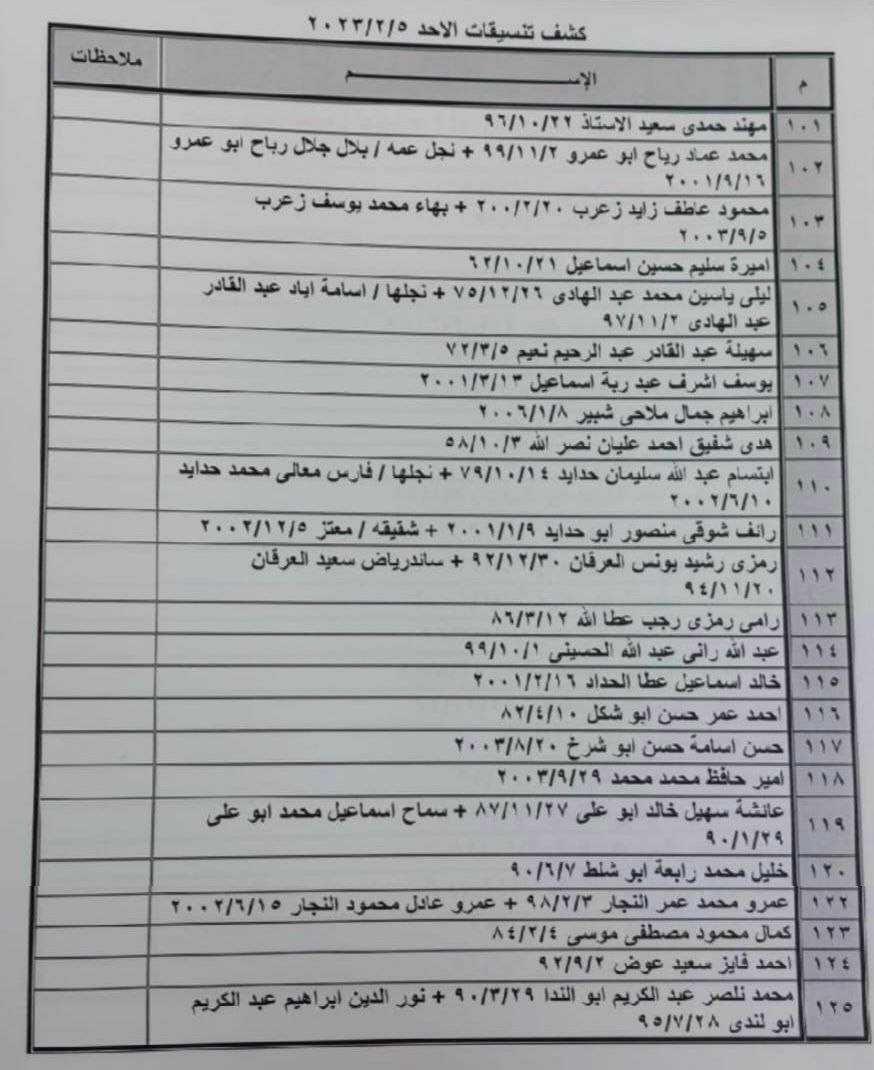 كشف تنسيقات الاحد ٢٠٢٣/٢/٥
م الإســــــــــم ملاحظات
١٠١ مهند حمدى سعيد الاستاذ ٩٦/١٠/٢٢
١٠٢ محمد عماد رياح ابو عمرو ٩٩/١١/٢ + نجل عمه / بلال جلال رباح ابو عمرو
٢٠٠١/٩/١٦
١٠٣ محمود عاطف زايد زعرب ٢٠٠/٢/٢٠ + بهاء محمد يوسف زعرب
٢٠٠٣/٩/٥
١٠٤ اميرة سليم حسين اسماعيل ٦٢/١٠/٢١
١٠٥ ليلى ياسين محمد عبد الهادى ٧٥/١٢/٢٦ + نجلها / اسامة اياد عبد القادر
عبد الهادى ٩٧/١١/٢
١٠٦ سهيلة عبد القادر عبد الرحيم نعيم ٧٢/٣/٥
١٠٧ يوسف اشرف عبد ربة اسماعيل ٢٠٠١/٣/١٣
١٠٨ ابراهيم جمال ملاحى شبير ٢٠٠٦/١/٨
١٠٩ هدى شفيق احمد عليان نصر الله ٥٨/١٠/٣
١١٠ ابتسام عبد الله سليمان حدايد ٧٩/١٠/١٤ + نجلها / فارس معالى محمد حدايد
٢٠٠٢/٦/١٠
١١١ رائف شوقى منصور ابو حدايد ٢٠٠١/١/٩ + شقيقه / معتز ٢٠٠٢/١٢/٥
١١٢ رمزى رشيد يونس العرقان ٩٢/١٢/٣٠ + ساندرياض سعيد العرقان
٩٤/١١/٢٠
١١٣ رامى رمزى رجب عطا الله ٨٦/٣/١٢
١١٤ عبد الله رانى عبد الله الحسينى ٩٩/١٠/١
١١٥ خالد اسماعيل عطا الحداد ٢٠٠١/٢/١٦
١١٦ احمد عمر حسن ابو شكل ٨٢/٤/١٠
١١٧ حسن اسامة حسن ابو شرخ ٢٠٠٣/٨/٢٠
١١٨ امير حافظ محمد محمد ٢٠٠٣/٩/٢٩
١١٩ عائشة سهيل خالد ابو على ٨٧/١١/٢٧ + سماح اسماعيل محمد ابو على
٩٠/١/٢٩
١٢٠ خليل محمد رابعة ابو شلط ٩٠/٦/٧
١٢٢ عمرو محمد عمر النجار ٩٨/٢/٣ + عمرو عادل محمود النجار ٢٠٠٢/٦/١٥
١٢٣ كمال محمود مصطفى موسى ٨٤/٢/٤
١٢٤ احمد فايز سعيد عوض ٩٢/٩/٢
١٢٥ محمد نلصر عبد الكريم ابو الندا ٩٠/٣/٢٩ + نور الدين ابراهيم عبد الكريم
ابو لندى ٩٥/٧/٢٨